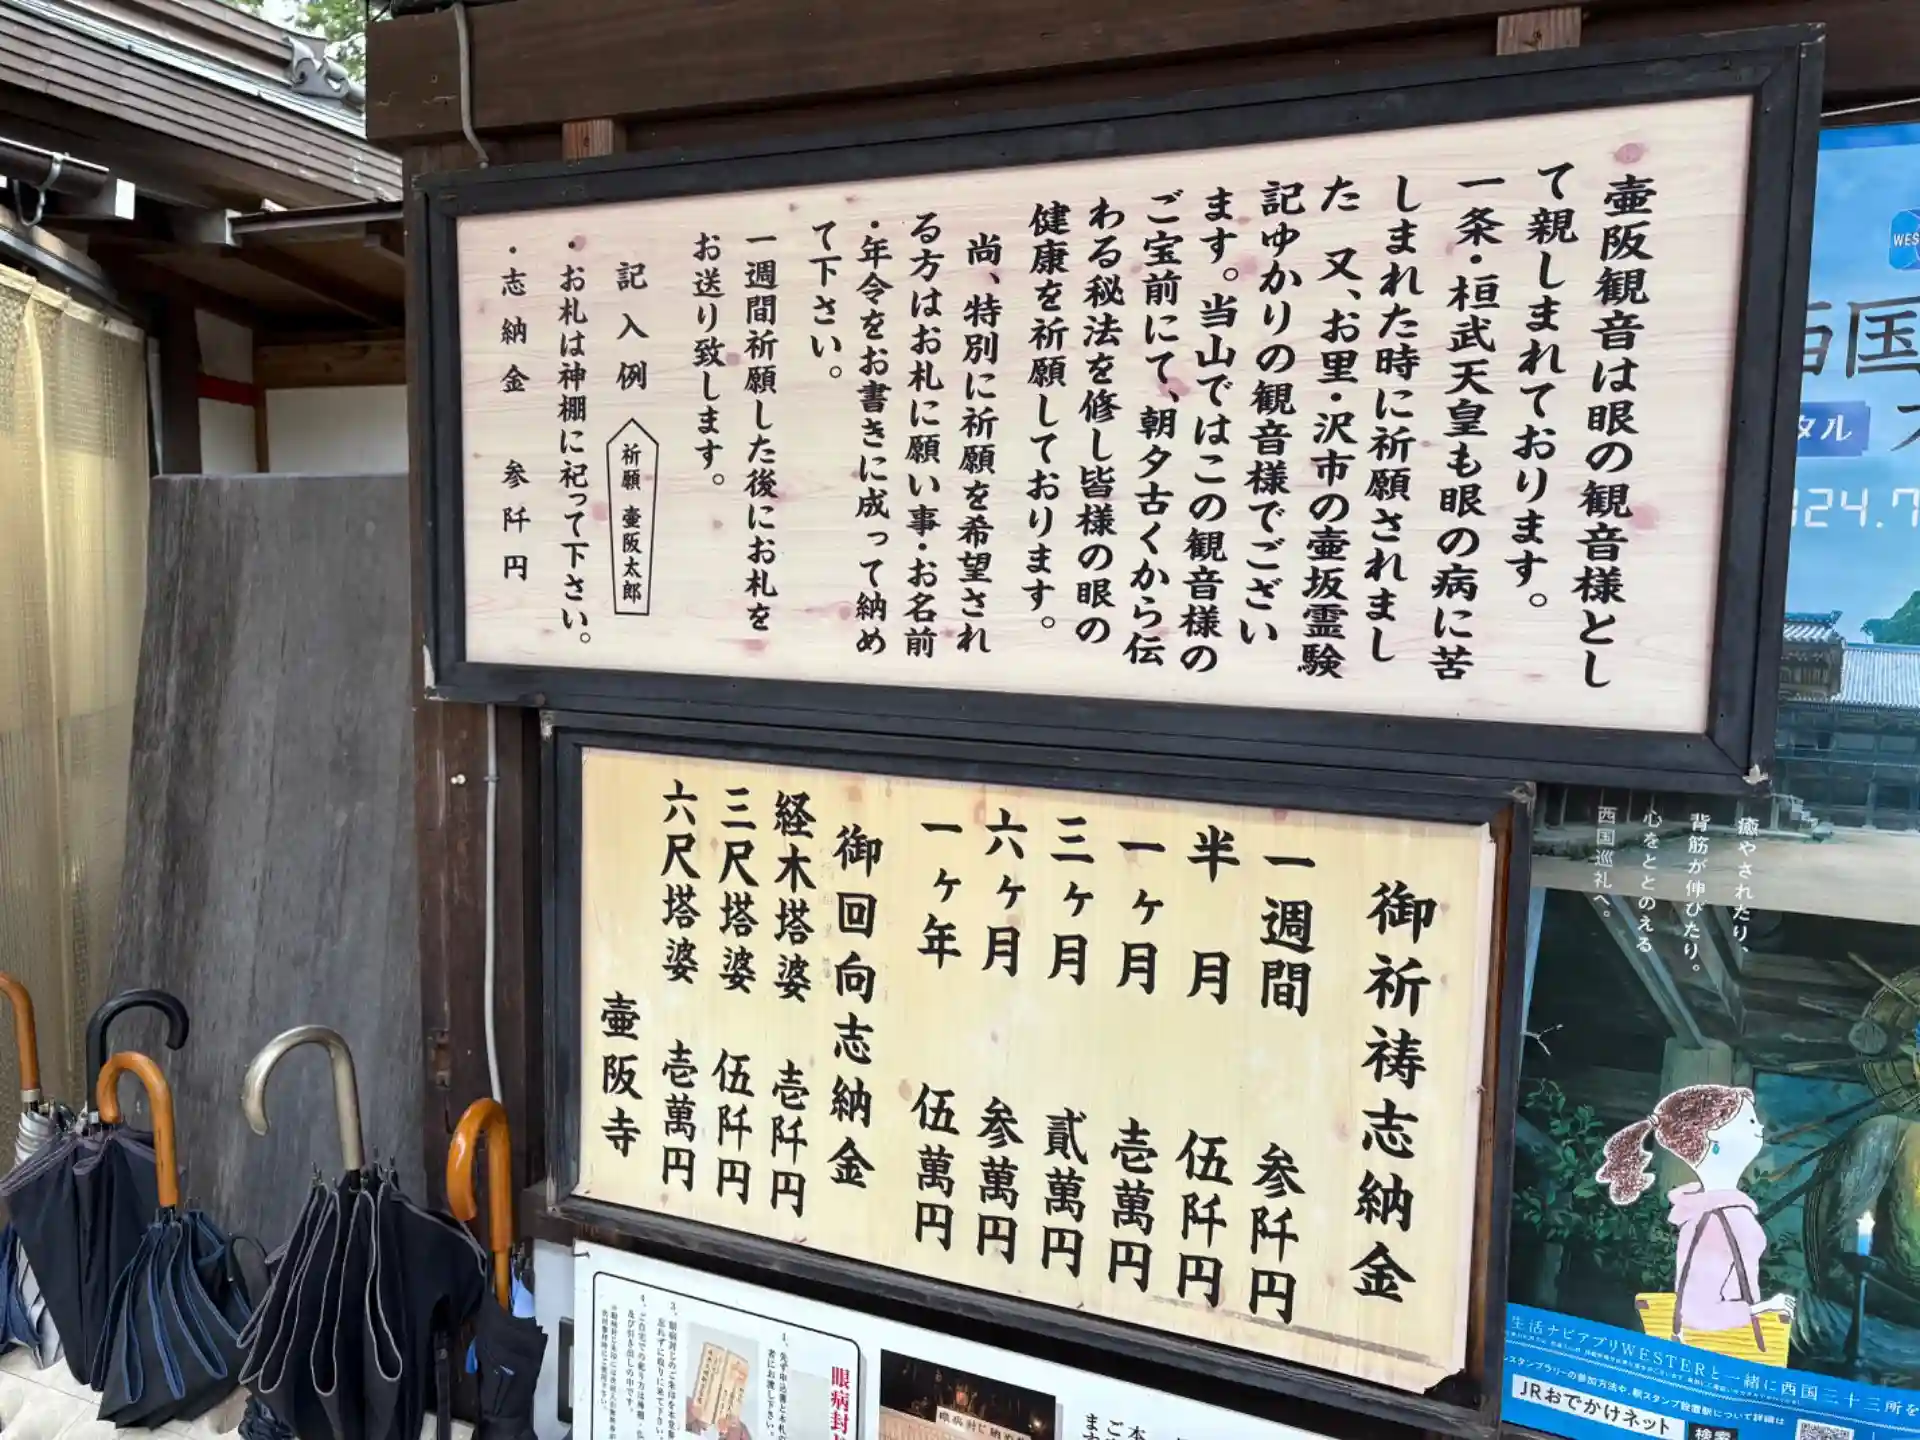 壷阪観音は眼の観音様とし
て親しまれております。
一条・桓武天皇も眼の病に苦
しまれた時に祈願されまし
た 又、お里・沢市の壷坂霊験
記ゆかりの観音様でござい
ます。当山ではこの観音様の
ご宝前にて、朝夕古くから伝
わる秘法を修し皆様の眼の
健康を祈願しております。
尚、特別に祈願を希望され
る方はお札に願い事・お名前
・年令をお書きに成って納め
て下さい。
一週間祈願した後にお札を
お送り致します。
記入例
祈願 壷阪太郎
・お札は神棚に祀って下さい。
・志納金 参阡円
御祈祷志納金
一週間 参阡円
半月 伍阡円
一ヶ月 壱萬円
三ヶ月 貳萬円
六ヶ月 参萬円
一ヶ年 伍萬円
御回向志納金
経木塔婆 壱阡円
三尺塔婆 伍阡円
六尺塔婆 壱萬円
壷阪寺
西国
タル
24.7
癒やされたり、
背筋が伸びたり。
心をととのえる
西国巡礼へ。
生活ナビアプリWESTERと一緒に西国三十三所を
スタンプラリーの参加方法や、駅スタンプ設置駅について詳細は
JRおでかけネット
検索
眼病封じ